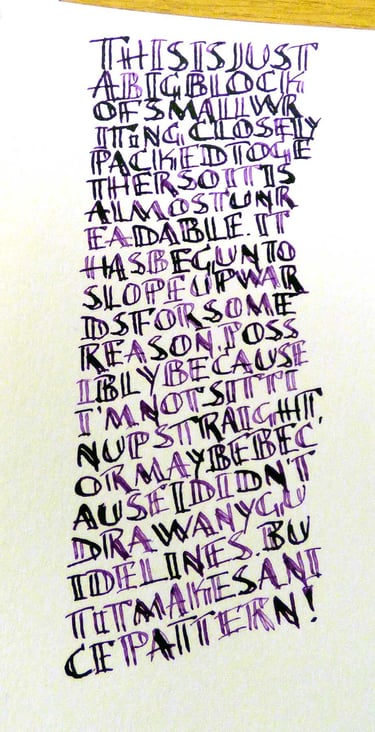 THISISJUST
ABIGBLOCK
OFSMALLWR
ITINGCLOSELY
PACKEDTOGE
THERSOITIS
ALMOSTUNR
EADABLE.IT
HASBEGUNTO
SLOPEUPWAR
DSFORSOME
REASON.POSS
IBLYBECAUSE
I'MNOTSITTI
NUPSTRAIGHT,
ORMAYBEBEC
AUSEIDIDN'T
DRAWANYGU
IDELINES.BU
TITMAKESANI
CEPATTERN!